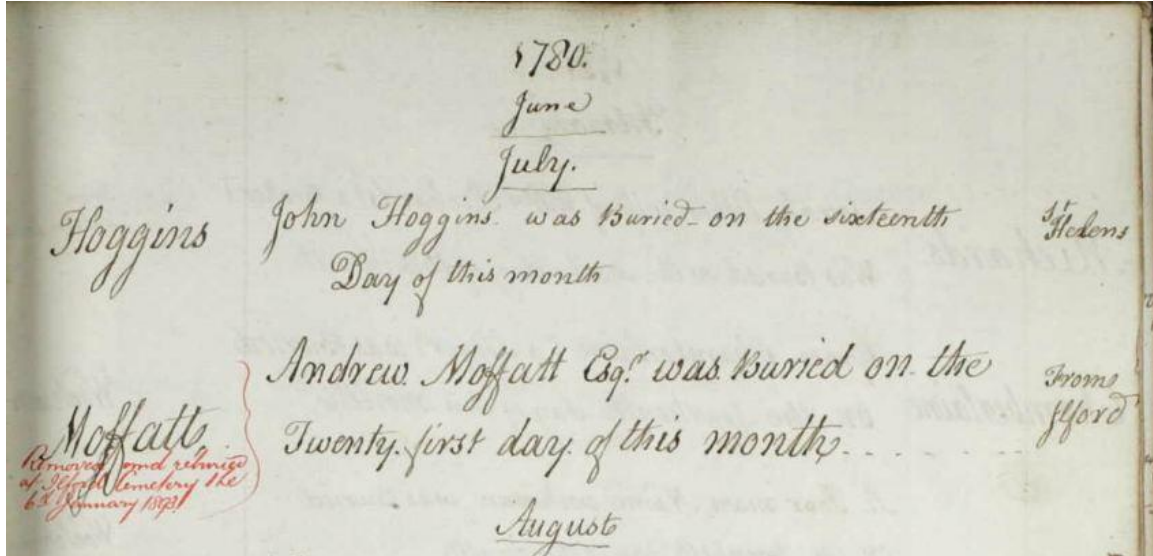 1780.
June
July.
Hoggins
John Hoggins was Buried on the sixteenth
Day of this month
St Helens
Moffatt
Andrew Moffatt Esqr. was Buried on the
Twenty first day of this month
From Ilford
Removed and reburied
at Ilford Cemetery the
6th January
August